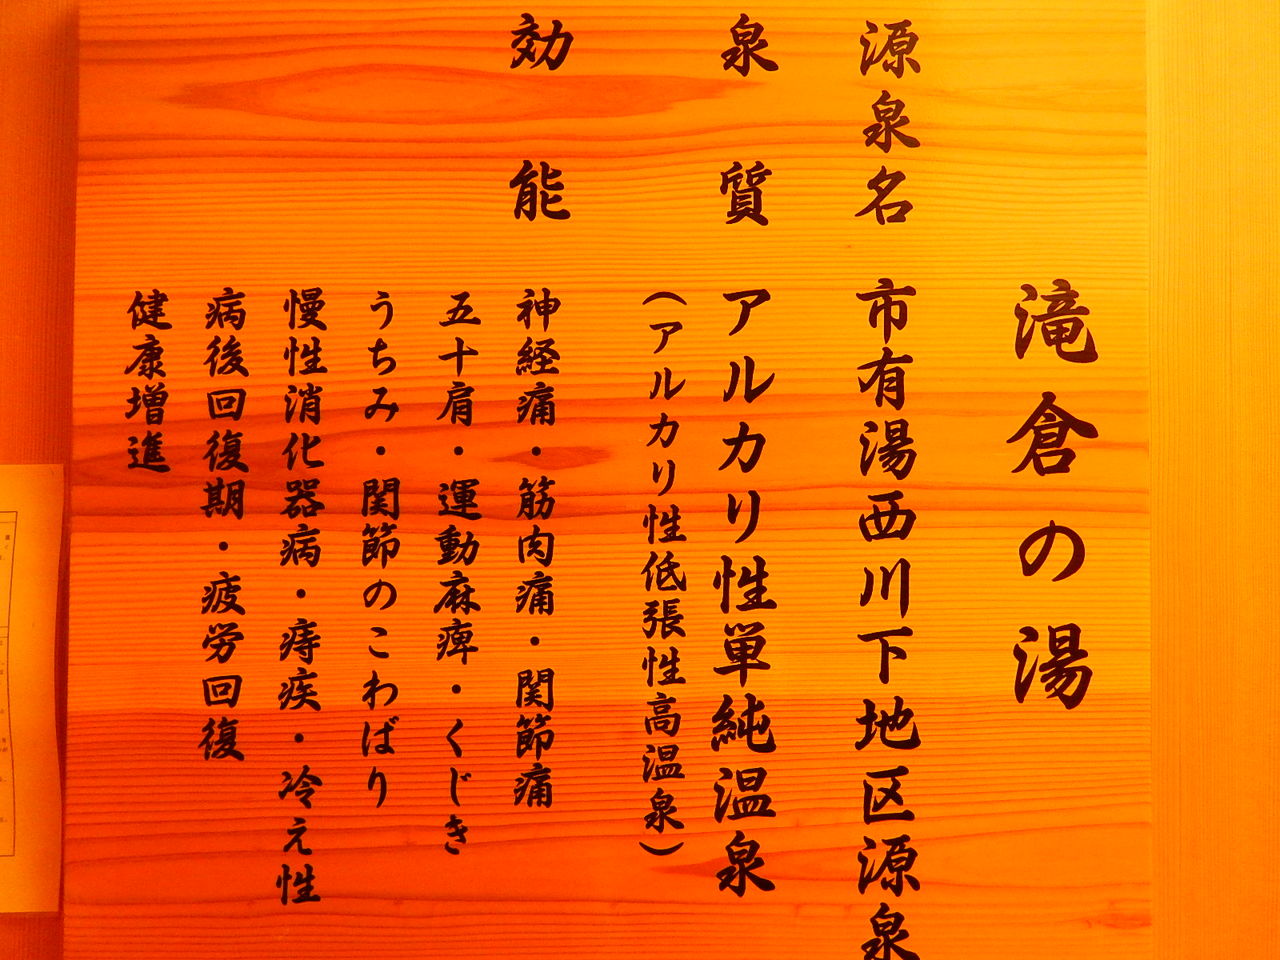 滝倉の湯
源泉名 市有湯西川下地区源泉
泉質 アルカリ性単純温泉
（アルカリ性低張性高温泉）
効能 神経痛・筋肉痛・関節痛
五十肩・運動麻痺・くじき
うちみ・関節のこわばり
慢性消化器病・痔疾・冷え性
病後回復期・疲労回復
健康増進